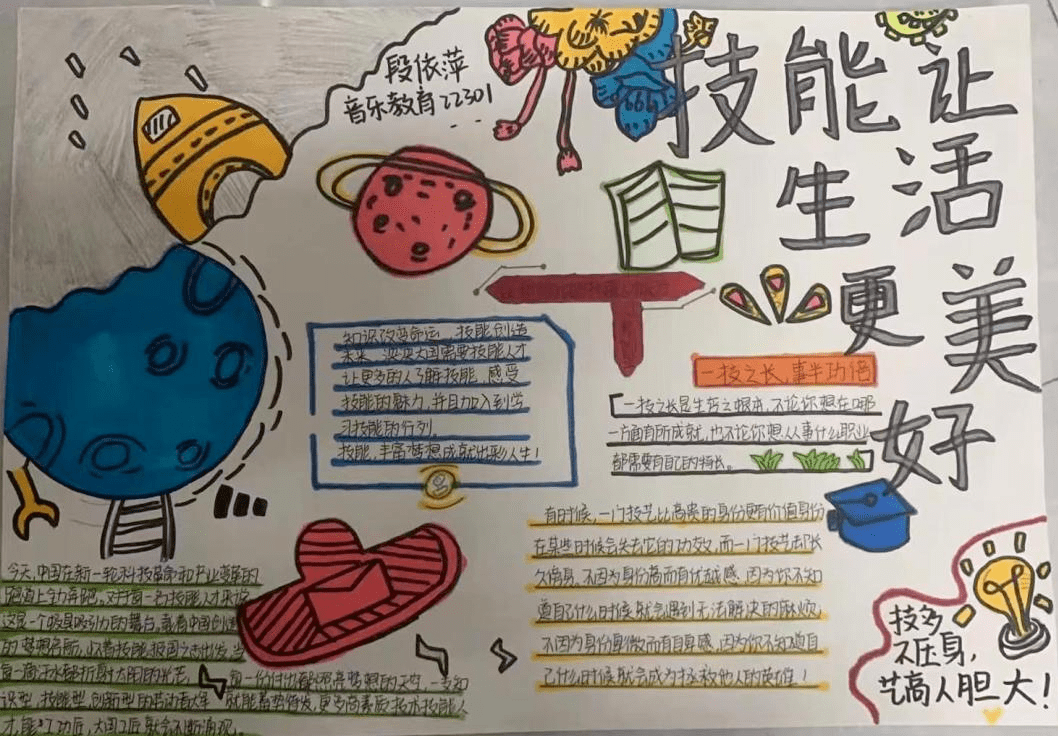 段依萍
音乐教育22301
技能让
生活
更美
好
知识改变命运,技能创造
未来,泱泱大国需要技能人才
让更多的人了解技能,感受
技能的魅力,并且加入到学
习技能的行列。
技能,丰富梦想成就出彩人生!
一技之长,事半功倍
一技之长是生活之根本,不论你想在哪
一方面有所成就,也不论你想从事什么职业
都需要有自己的特长。
有时候,一门技艺比高贵的身份更有价值身份
在某些时候会失去它的功效,而一门技艺却长
久傍身,不因为身份高而有优越感,因为你不知
道自己什么时候就会遇到无法解决的麻烦
不因为身份卑微而有自卑感,因为你不知道自
己什么时候就会成为拯救他人的英雄!
今天,中国在新一轮科技革命和产业变革的
跑道上全力奔跑,对于每一名技能人才来说
这是一个极具吸引力的舞台。
的梦想名所,以着技能报国之
每一滴汗水都折身大国的光芒,每一份付出都
识型,技能型,创新型的劳动者大军 就能蓄势待发,更多高素质技术技能人
才,能工巧匠,大国工匠就会不断涌现。
技多
不压身,
艺高人胆大!